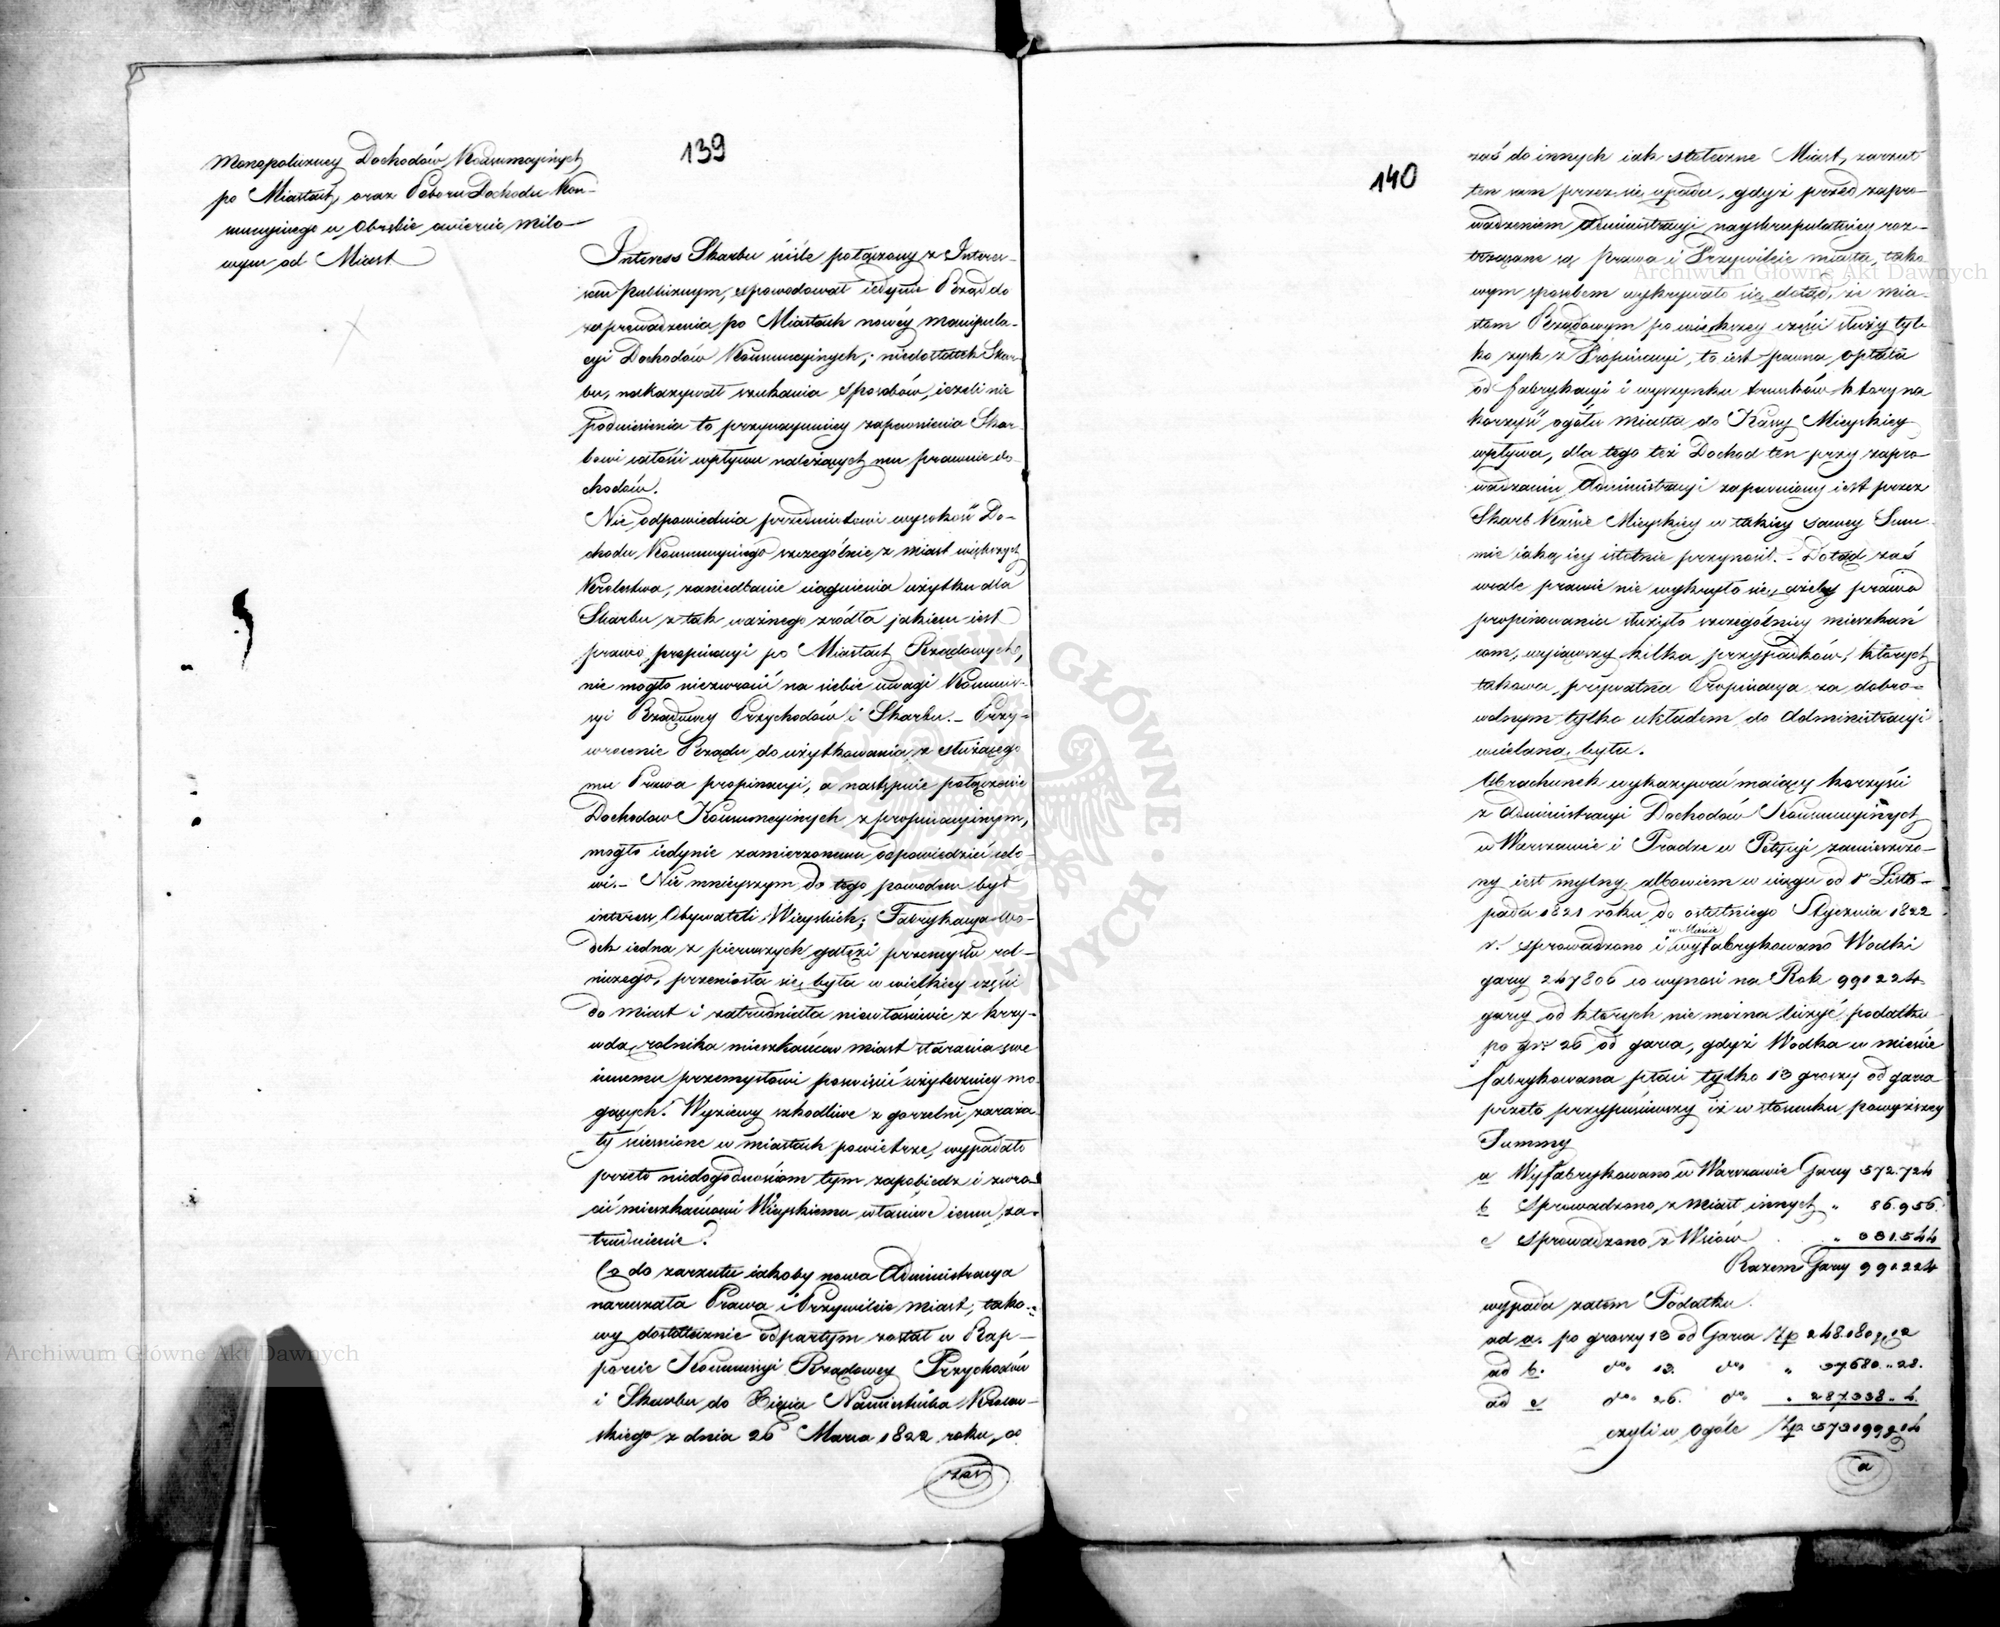 139
Monopoliczney Dochodów Konsumcyinych
po Miastach, oraz Poboru Dochodu Kon-
sumcyinego w Obrębie ćwierćmilo-
wym od Miast
Interess Skarbu ściśle połączony z Interes-
sem publicznym, spowodował iedynie Rząd do
zaprowadzenia po Miastach nowéy manipula-
cyi Dochodów Konsumcyinych; niedostatek Skar-
bu, nakazywał szukania sposobów, ieżeli nie
podniesienia to przynaymniey zapewnienia Skar-
bowi całości wpływu należących mu prawnie do-
chodów.
Nie odpowiednia przedmiotowi wysokość Do-
chodu Konsumcyinego szczególnie z miast większych
Królestwa, zaniedbanie ciągnienia użytku dla
Skarbu z tak ważnego zródła jakiem iest
prawo propinacyi po Miastach Rządowych,
nie mogło niezwrócić na siebie uwagi Kommis-
syi Rządowey Przychodów i Skarbu. – Przy-
wrócenie Rządu do użytkowania z służącego
mu Prawa propinacyi, a następnie połączenie
Dochodow Konsumcyinych z propinacyinym,
mogło iedynie zamierzonemu odpowiedzieć celo-
wi. – Nie mnieyszym do tego powodem był
interess Obywateli Wieyskich; Fabrykacya wó-
dek iedna z pierwszych gałęzi przemysłu rol-
niczego, przeniosła się była w wielkiey części
do miast i zatrudniała niewłaściwie z krzy-
wdą rolnika mieszkańców miast starania swe
innemu przemysłowi poswięcić użyteczniey mo-
gących. Wyziewy szkodliwe z gorzelni, zaraża-
ły ścieśnione w miastach powietrze, wypadało
przeto niedogodnościom tym zapobiedz i zwró-
cić mieszkańcowi Wieyskiemu właściwe iemu za-
trudnienie.
Co do zarzutu iakoby nowa Administracya
naruszała Prawa i Przywileie miast, tako-
wy dostatecznie odpartym został w Rap-
porcie Kommissyi Rządowey Przychodów
i Skarbu do Xięcia Namiestnika Królew-
skiego z dnia 26 Marca 1822 roku, co
zaś
140
zaś do innych iak stołeczne Miast, zarzut
ten sam przez się upada, gdyż przed zapro-
wadzeniem Administracyi nayskrupulatniey roz-
trząsane są prawa i Przywileie miasta, tako-
wym sposobem wykrywało się dotąd, że mia-
stom Rządowym po większey części służy tyl-
ko zysk z Propinacyi, to iest pewna opłata
od fabrykacyi i wyszynku trunków który na
korzyść ogółu miasta do Kassy Mieyskiey
wpływa, dla tego też Dochod ten przy zapro-
wadzaniu Administracyi zapewniony iest przez
Skarb Kassie Mieyskiey w takiey samey Sum-
mie iaką iey istotnie przynosił. – Dotąd zaś
wcale prawie nie wykryło się, ażeby prawo
propinowania służyło szczególniey mieszkań-
com, wyiąwszy kilka przypadków, których
takowa prywatna Propinacya za dobro-
wolnym tylko układem do Administracyi
wcielana była.
Obrachunek wykazywać maiący korzyści
z Administracyi Dochodów Konsumcyinych
w Warszawie i Pradze w Petycyi zamieszczo-
ny iest mylny, albowiem w ciągu od 1 Listo-
pada 1821 roku do ostatniego Stycznia 1822
r. sprowadzono i w Mieście wyfabrykowano Wodki
garcy 247806 co wynosi na Rok 991224
garcy od których nie można liczyć podatku
po gr. 26 od garca, gdyż Wodka w mieście
fabrykowana płaci tylko 13 groszy od garca
przeto przypuściwszy iż w stosunku powyższey
Summy
a Wyfabrykowano w Warszawie Garcy 572.724
b Sprowadzono z Miast innych " 86.956.
c Sprowadzono z Wsiów " 331.544
Razem Garcy 991224
wypada zatem Podatku.
ad a. po groszy 13 od Garca Zp 248.180 g. 12
ad b. dto 13. dto " 37680.. 28.
ad c dto 26. dto " 287.338.. 4.
czyli w ogóle Zp 573199 g 14
a
Archiwum Główne Akt Dawnych
Archiwum Główne Akt Dawnych